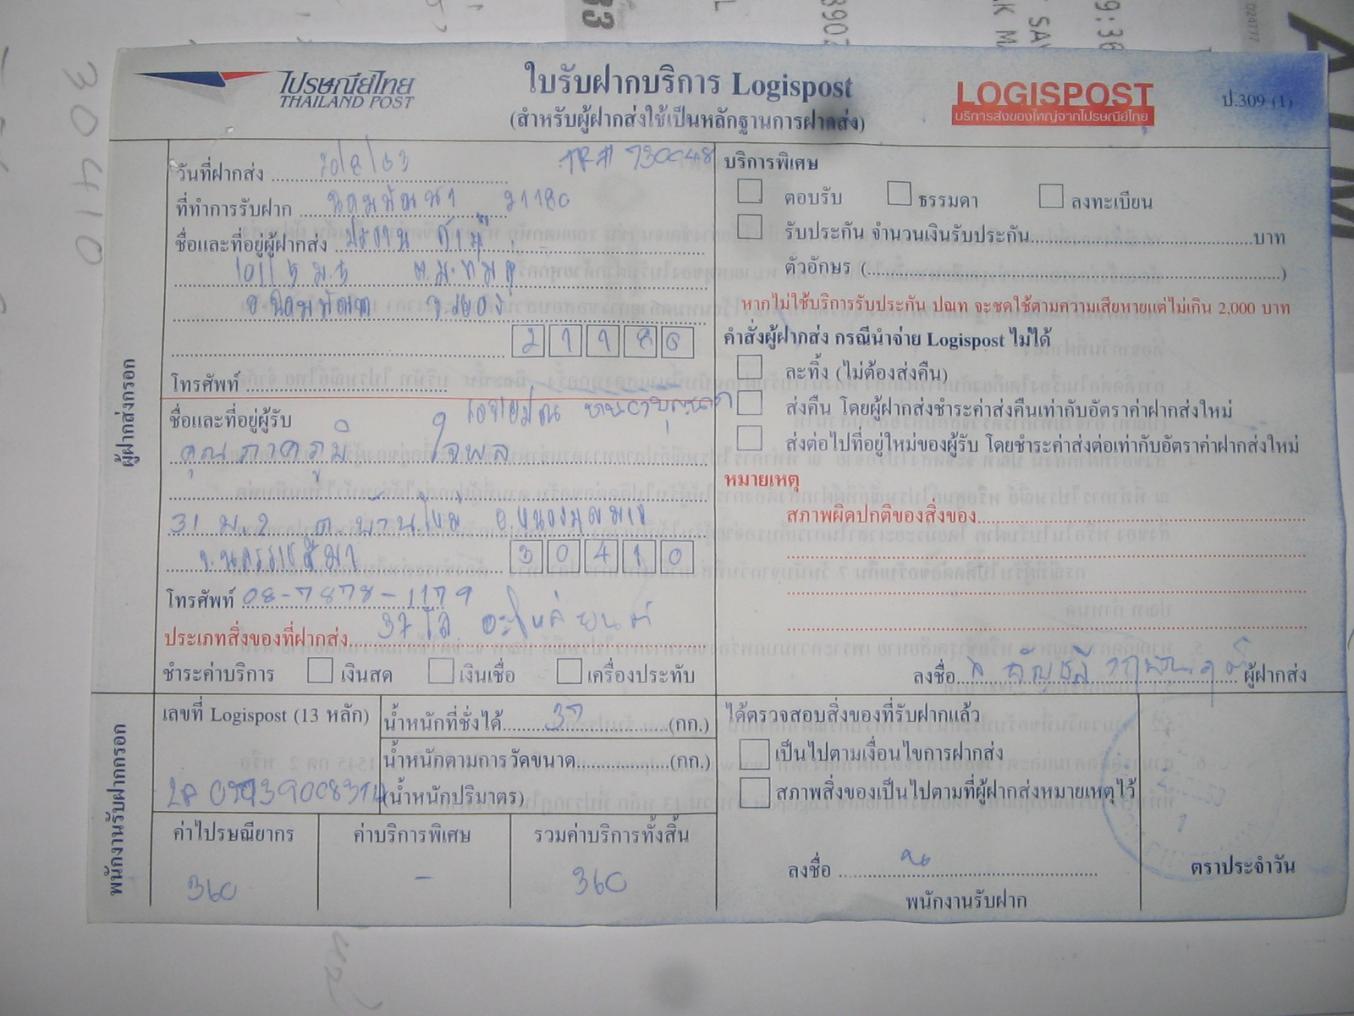 ไปรษณีย์ไทย
THAILAND POST
ใบรับฝากบริการ Logispost
(สำหรับผู้ฝากส่งใช้เป็นหลักฐานการฝากส่ง)
LOGISPOST
บริการส่งของใหญ่จากไปรษณีย์ไทย
ป.309 (1)
30410
ผู้ฝากส่งกรอก
วันที่ฝากส่ง 20/8/53
ที่ทำการรับฝาก นิคมพัฒนา 21180
ชื่อและที่อยู่ผู้ฝากส่ง
101/5 ม.5
อ.นิคมพัฒนา จ.ระยอง
21180
โทรศัพท์
ชื่อและที่อยู่ผู้รับ
คุณภาคภูมิ ใจพล
31 ม.2 ต.บ้านใหม่ อ.หนองบุญมาก
จ.นครราชสีมา 30410
โทรศัพท์ 08-7878-1179
ประเภทสิ่งของที่ฝากส่ง 37 โล อะไหล่ยนต์
ชำระค่าบริการ เงินสด เงินเชื่อ เครื่องประทับ
บริการพิเศษ
ตอบรับ ธรรมดา ลงทะเบียน
รับประกัน จำนวนเงินรับประกัน บาท
ตัวอักษร ( )
หากไม่ใช้บริการรับประกัน ปณท จะชดใช้ตามความเสียหายแต่ไม่เกิน 2,000 บาท
คำสั่งผู้ฝากส่ง กรณีนำจ่าย Logispost ไม่ได้
ละทิ้ง (ไม่ต้องส่งคืน)
ส่งคืน โดยผู้ฝากส่งชำระค่าส่งคืนเท่ากับอัตราค่าฝากส่งใหม่
ส่งต่อไปที่อยู่ใหม่ของผู้รับ โดยชำระค่าส่งต่อเท่ากับอัตราค่าฝากส่งใหม่
หมายเหตุ
สภาพผิดปกติของสิ่งของ
ลงชื่อ ผู้ฝากส่ง
พนักงานรับฝากกรอก
เลขที่ Logispost (13 หลัก)
น้ำหนักที่ชั่งได้ 37 (กก.)
น้ำหนักตามการวัดขนาด (กก.)
(น้ำหนักปริมาตร)
ค่าไปรษณียากร ค่าบริการพิเศษ รวมค่าบริการทั้งสิ้น
360 - 360
ได้ตรวจสอบสิ่งของที่รับฝากแล้ว
เป็นไปตามเงื่อนไขการฝากส่ง
สภาพสิ่งของเป็นไปตามที่ผู้ฝากส่งหมายเหตุไว้
ลงชื่อ
พนักงานรับฝาก
ตราประจำวัน